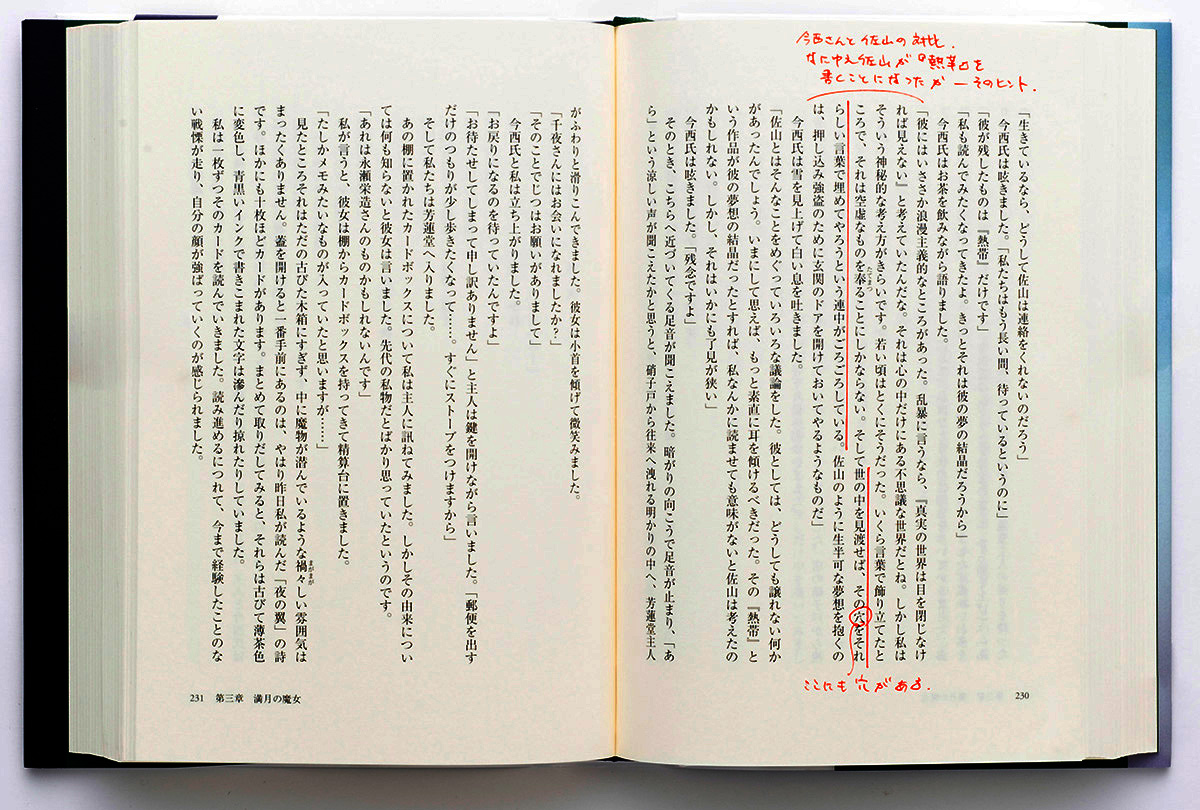 今西さんと佐山の対比.
なにゆえ佐山が『熱帯』を
書くことになったか ― そのヒント.
「生きているなら、どうして佐山は連絡をくれないのだろう」
今西氏は呟きました。「私たちはもう長い間、待っているというのに」
「彼が残したものは『熱帯』だけです」
「私も読んでみたくなってきたよ。きっとそれは彼の夢の結晶だろうから」
今西氏はお茶を飲みながら語りました。
「彼にはいささか浪漫主義的なところがあった。乱暴に言うなら、『真実の世界は目を閉じなけ
れば見えない』と考えていたんだな。それは心の中だけにある不思議な世界だとね。しかし私は
そういう神秘的な考え方がきらいです。若い頃はとくにそうだった。いくら言葉で飾り立てたと
ころで、それは空虚なものを奉ることにしかならない。そして世の中を見渡せば、その穴をそれ
たてまつ
らしい言葉で埋めてやろうという連中がごろごろしている。佐山のように生半可な夢想を抱くの
は、押し込み強盗のために玄関のドアを開けておいてやるようなものだ」
今西氏は雪を見上げて白い息を吐きました。
「佐山とはそんなことをめぐっていろいろな議論をした。彼としては、どうしても譲れない何か
があったんでしょう。いまにして思えば、もっと素直に耳を傾けるべきだった。その『熱帯』と
いう作品が彼の夢想の結晶だったとすれば、私なんかに読ませても意味がないと佐山は考えたの
かもしれない。しかし、それはいかにも了見が狭い」
今西氏は呟きました。「残念ですよ」
そのとき、こちらへ近づいてくる足音が聞こえました。暗がりの向こうで足音が止まり、「あ
ら」という涼しい声が聞こえたかと思うと、硝子戸から往来へ洩れる明かりの中へ、芳蓮堂主人
ここにも穴がある.
230
がふわりと滑りこんできました。彼女は小首を傾げて微笑みました。
「千夜さんにはお会いになれましたか?」
「そのことでじつはお願いがありまして」
今西氏と私は立ち上がりました。
「お戻りになるのを待っていたんですよ」
「お待たせしてしまって申し訳ありません」と主人は鍵を開けながら言いました。「郵便を出す
だけのつもりが少し歩きたくなって……。すぐにストーブをつけますから」
そして私たちは芳蓮堂へ入りました。
あの棚に置かれたカードボックスについて私は主人に訊ねてみました。しかしその由来につい
ては何も知らないと彼女は言いました。先代の私物だとばかり思っていたというのです。
「あれは永瀬栄造さんのものかもしれないんです」
私が言うと、彼女は棚からカードボックスを持ってきて精算台に置きました。
「たしかメモみたいなものが入っていたと思いますが……」
見たところそれはただの古びた木箱にすぎず、中に魔物が潜んでいるような禍々しい雰囲気は
まがまが
まったくありません。蓋を開けると一番手前にあるのは、やはり昨日私が読んだ「夜の翼」の詩
です。ほかにも十枚ほどカードがあります。まとめて取りだしてみると、それらは古びて薄茶色
に変色し、青黒いインクで書きこまれた文字は滲んだり掠れたりしていました。
私は一枚ずつそのカードを読んでいきました。読み進めるにつれて、今まで経験したことのな
い戦慄が走り、自分の顔が強ばっていくのが感じられました。
231 第三章 満月の魔女